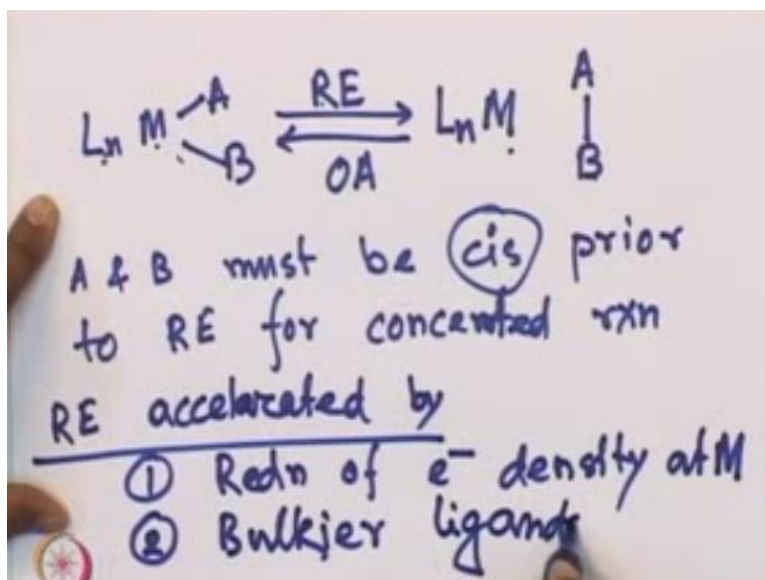 LnM A B RE OA LnM A B
A & B must be cis prior
to RE for concerted rxn
RE accelarated by
① Redn of e⁻ density at M
② Bulkier ligands